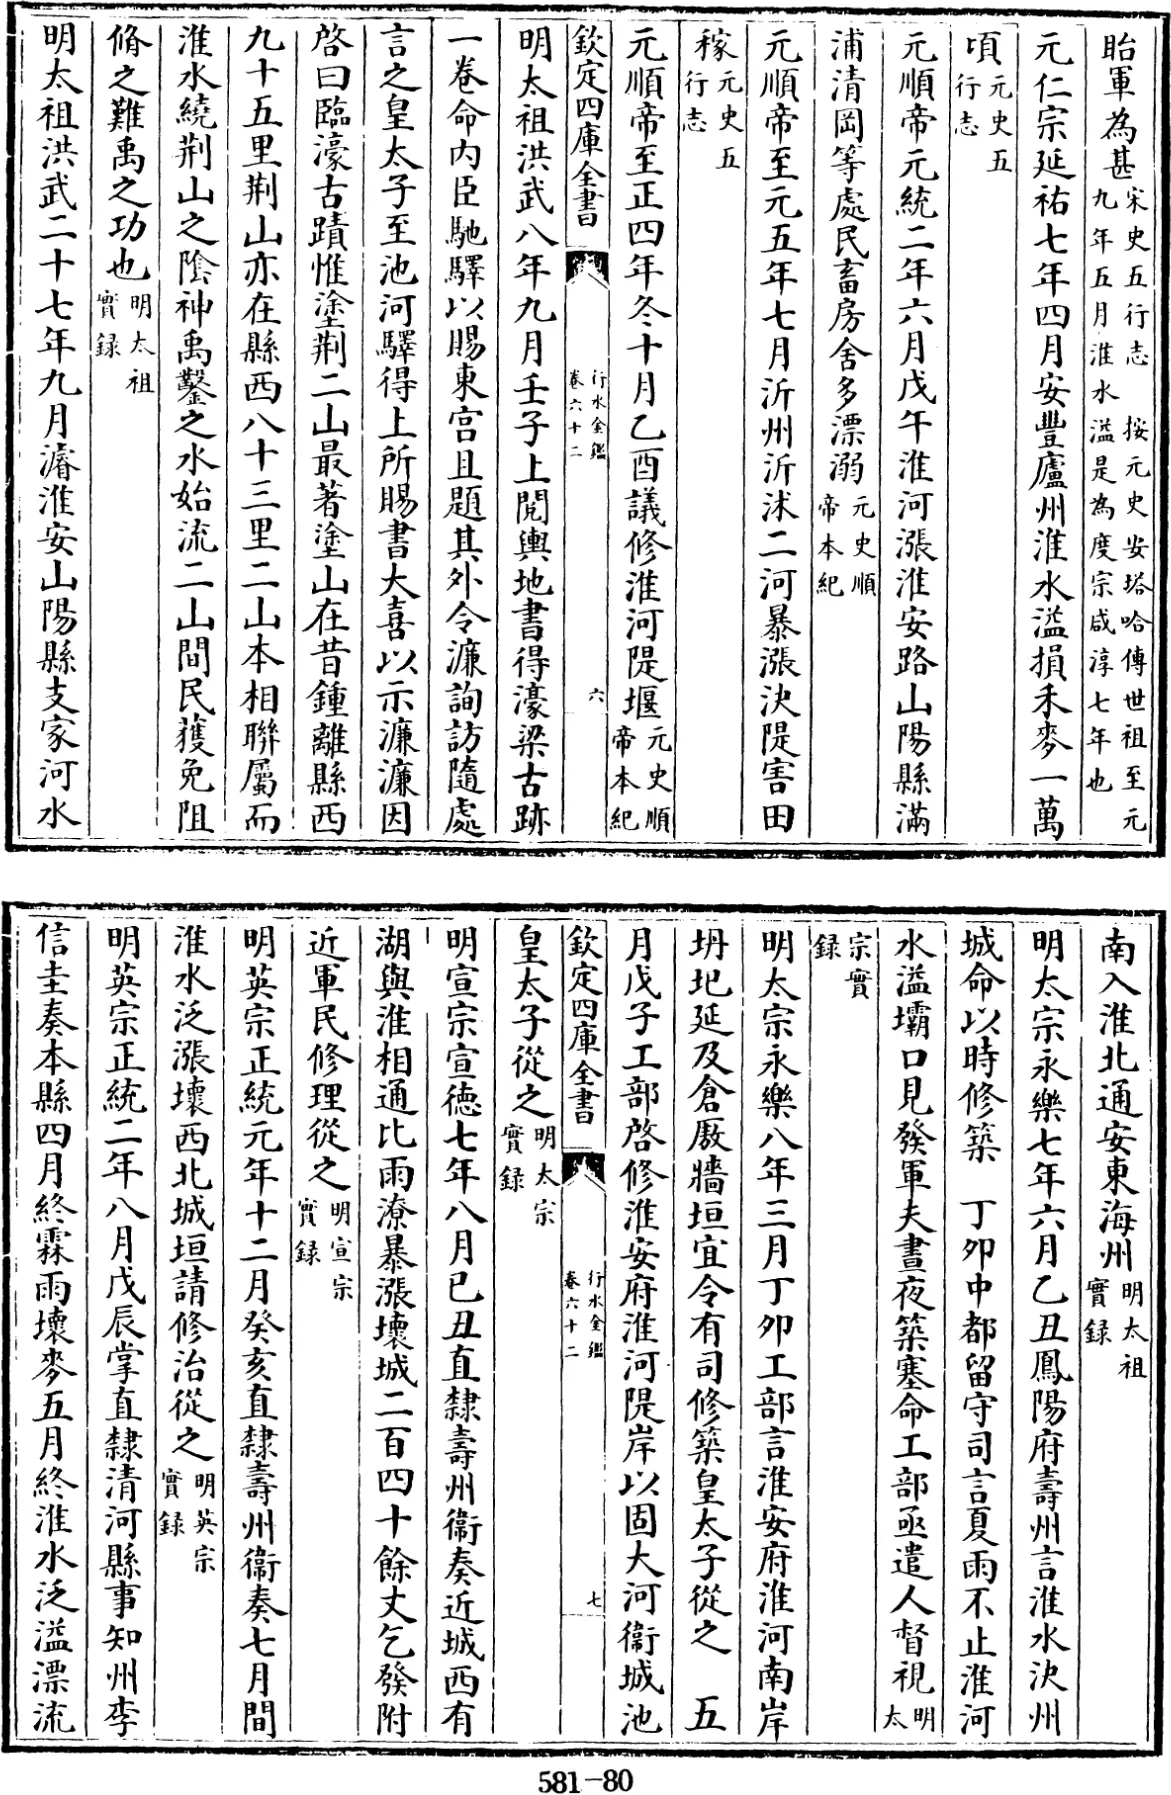 眙軍為甚宋史五行志 按元史安塔哈傳世祖至元九年五月淮水溢是為度宗咸淳七年也
元仁宗延祐七年四月安豐廬州淮水溢損禾麥一萬
頃元史五行志
元順帝元統二年六月戊午淮河漲淮安路山陽縣滿
浦清岡等處民畜房舍多漂溺元史順帝本紀
元順帝至元五年七月沂州沂沭二河暴漲決隄害田
稼元史五行志
元順帝至正四年冬十月乙酉議修淮河隄堰元史順帝本紀
欽定四庫全書 行水金鑑卷六十二 六
明太祖洪武八年九月壬子上閱輿地書得濠梁古跡
一卷命內臣馳驛以賜東宮且題其外令濂詢訪隨處
言之皇太子至池河驛得上所賜書大喜以示濂濂因
啓曰臨濠古蹟惟塗荆二山最著塗山在昔鍾離縣西
九十五里荆山亦在縣西八十三里二山本相聯屬而
淮水繞荆山之陰神禹鑿之水始流二山間民獲免阻
脩之難禹之功也明太祖實録
明太祖洪武二十七年九月濬淮安山陽縣支家河水
南入淮北通安東海州明太祖實録
明太宗永樂七年六月乙丑鳳陽府壽州言淮水決州
城命以時修築 丁卯中都留守司言夏雨不止淮河
水溢壩口見發軍夫晝夜築塞命工部亟遣人督視明太
宗實録
明太宗永樂八年三月丁卯工部言淮安府淮河南岸
坍圮延及倉廒牆垣宜令有司修築皇太子從之 五
月戊子工部啓修淮安府淮河隄岸以固大河衞城池
欽定四庫全書 行水金鑑卷六十二 七
皇太子從之明太宗實録
明宣宗宣德七年八月巳丑直隸壽州衞奏近城西有
湖與淮相通比雨潦暴漲壞城二百四十餘丈乞發附
近軍民修理從之明宣宗實録
明英宗正統元年十二月癸亥直隸壽州衞奏七月間
淮水泛漲壞西北城垣請修治從之明英宗實録
明英宗正統二年八月戊辰掌直隸清河縣事知州李
信圭奏本縣四月終霖雨壞麥五月終淮水泛溢漂流
581-80